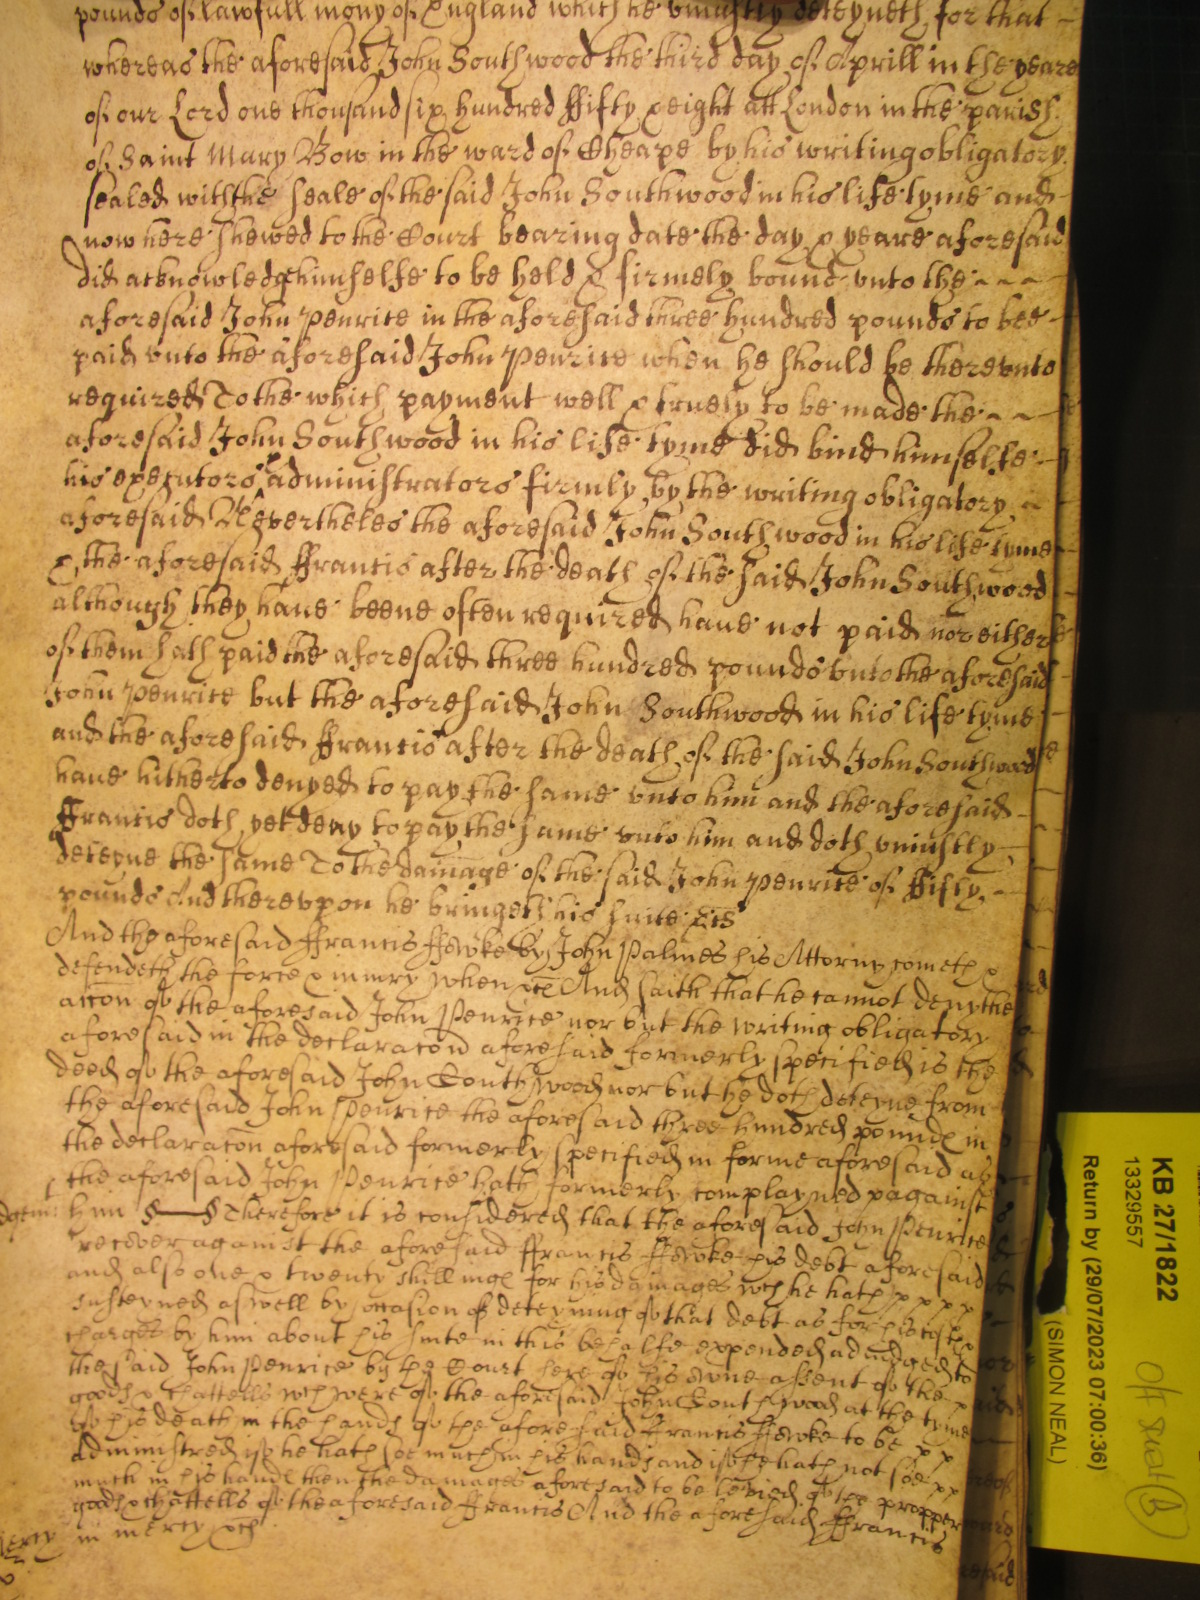 pounds of lawfull mony of England which he uniustly deteyneth for that
whereas the aforesaid John Southwood the third day of Aprill in the yeare
of our Lord one thousand six hundred ffifty & eight att London in the parish
of Saint Mary Bow in the ward of Cheape by his writing obligatory
sealed with the seale of the said John Southwood in his life tyme and
now here shewed to the Court bearing date the day & yeare aforesaid
did acknowledge himselfe to be held & firmely bound unto the
aforesaid John Penrice in the aforesaid three hundred pounds to bee
paid unto the aforesaid John Penrice when he should be thereunto
required To the which payment well & truely to be made the
aforesaid John Southwood in his life tyme did bind himselfe
his executors & administrators firmly by the writing obligatory
aforesaid Nevertheles the aforesaid John Southwood in his life tyme
& the aforesaid ffrancis after the death of the said John Southwood
although they haue beene often required haue not paid nor either
of them hath paid the aforesaid three hundred pounds unto the aforesaid
John Penrice but the aforesaid John Southwood in his life tyme
and the aforesaid ffrancis after the death of the said John Southwood
haue hitherto denyed to pay the same unto him and the aforesaid
ffrancis doth yet deny to pay the same unto him and doth uniustly
deteyne the same To the damage of the said John Penrice of ffifty
pounds And thereupon he bringeth his suite &c
And the aforesaid ffrancis ffewke by John Palmes his Attorny cometh &
defendeth the force & iniury when &c And saith that he cannot deny the
accon of the aforesaid John Penrice nor but the writing obligatory
aforesaid in the declaracon aforesaid formerly specified is the
deed of the aforesaid John Southwood nor but he doth deteyne from
the aforesaid John Penrice the aforesaid three hundred pounds in
the declaracon aforesaid formerly specified in forme aforesaid as
the aforesaid John Penrice hath formerly complayned against
him Therefore it is considered that the aforesaid John Penrice
recover against the aforesaid ffrancis ffewke his debt aforesaid
and also one & twenty shillings for his damages wch he hath
susteyned aswell by occasion of deteyning of that debt as for his costs &
charges by him about his suite in this behalfe expended adiudged to
the said John Penrice by the Court here of his owne assent of the
goods & chattells wch were of the aforesaid John Southwood at the tyme
of his death in the hands of the aforesaid ffrancis ffewke to be
administred if he hath soe much in his hands and if he hath not soe
much in his hands then the damages aforesaid to be levied of the propper
goods & chattells of the aforesaid ffrancis And the aforesaid ffrancis
in mercy &c
KB 27/1822
13329557
Return by (29/07/2023 07:00:36)
(SIMON NEAL)